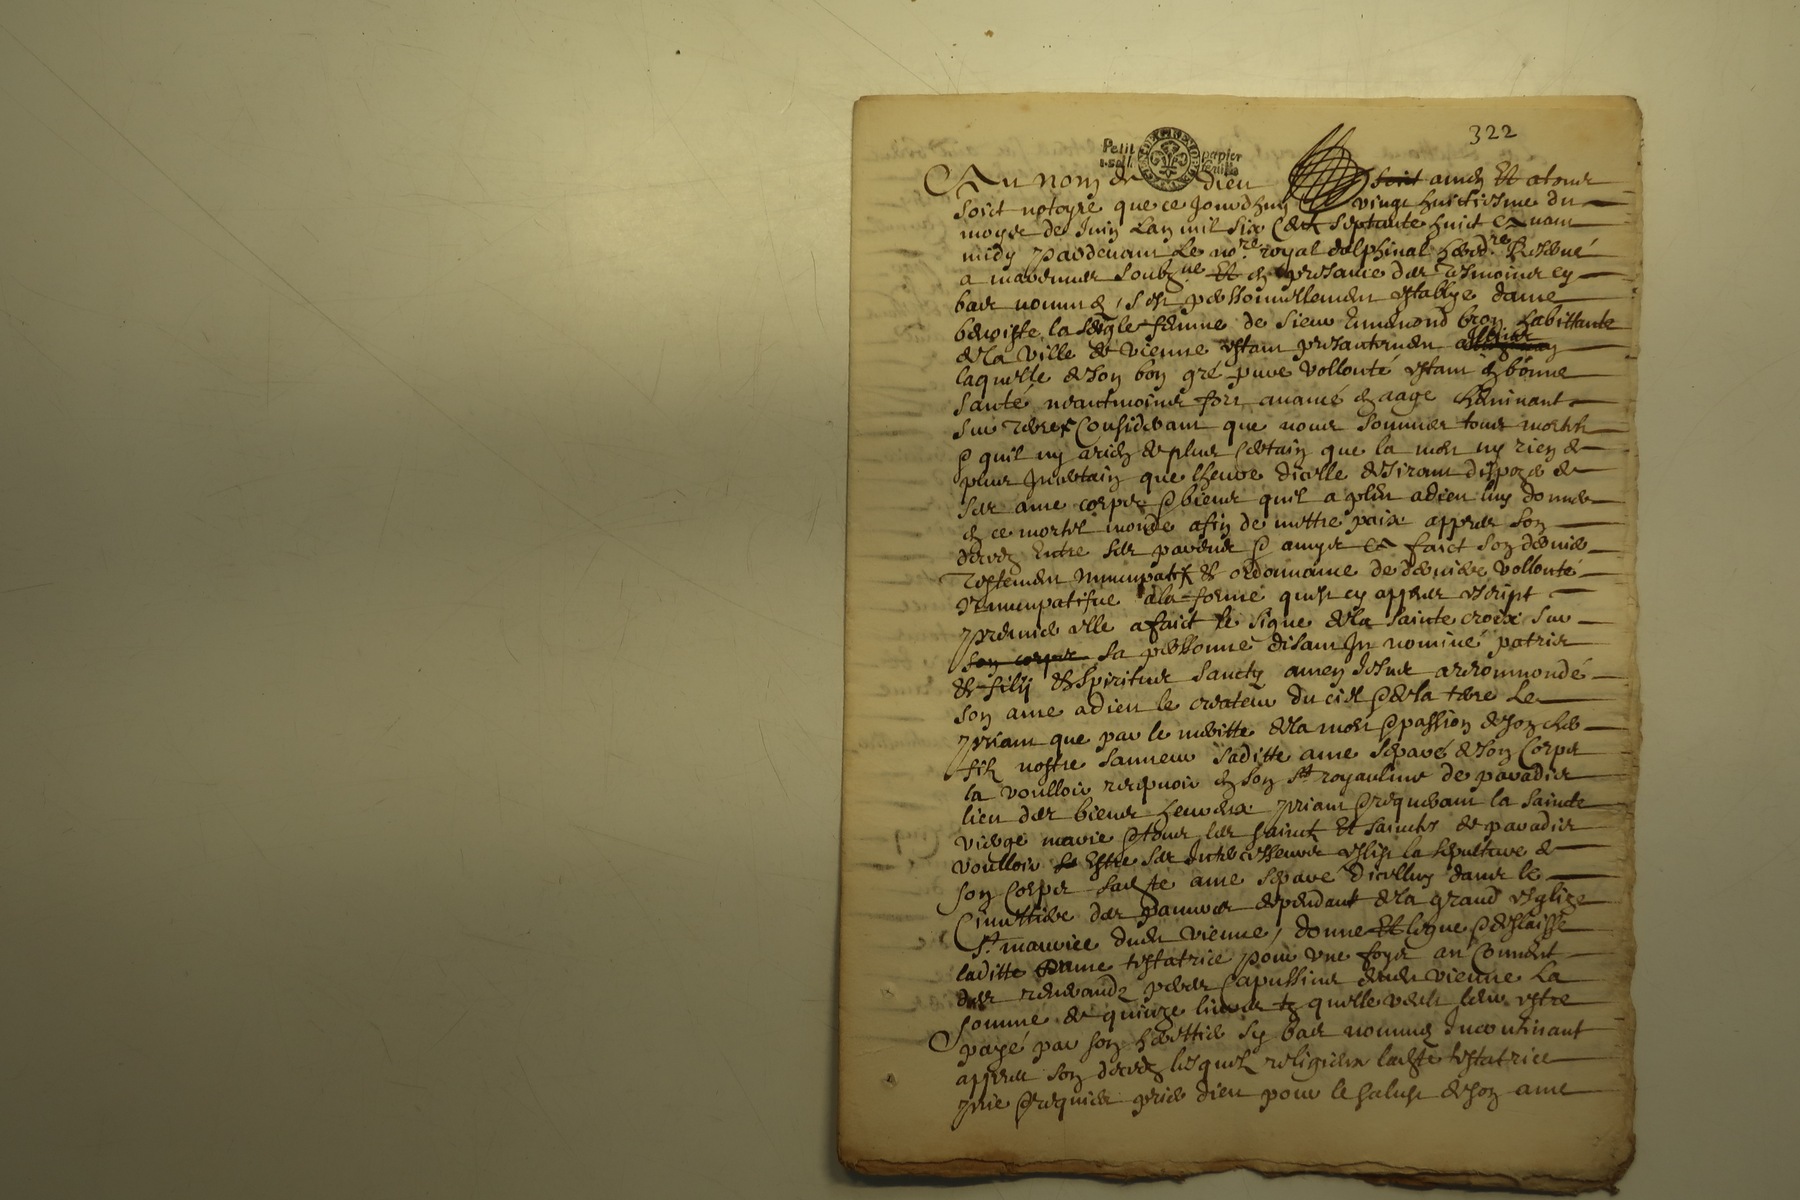 322
Petit papier
1. soll. feuille
Au nom de Dieu soit amen Et atous
soict notoyre que ce jourdhuy vingt huictiesme du
moys de Juin Lan mil six cent septante huict avant
midy pardevant Le no.re royal delphinal hered.re Reservé
a mademoir soubz.ne Et en presance des tesmoins cy
bas nommes, sest personnellement establye dame
benoiste la femme de sieur Ennemond bron habittante
de la ville de vienne estant presantement
laquelle de son bon gré pure vollonté estant en bonne
santé neantmoings fort avancé en aage cheminant
sur terre Considerant que nous sommes tous mortels
& quil ny arien de plus certain que la mort ny rien de
plus Incertain que lheure dicelle desirant dispozer de
ses ame corps & biens quil a pleu adieu luy donner
en ce mortel monde afin de mettre paix appres son
deces Entre ses parents & amys a faict son dernier
Testement nuncupatif et ordonnance de derniere vollonté
Nuncupatifve a la forme quest cy appres escript
Premier elle a faict le signe de la sainte croix sur
son corps sa personne disant In nomine patris
et filij et spiritus sancty amen Jesus a recommondé
son ame adieu le createur du ciel & de la terre Le
priant que par le meritte de la mort & passion de son cher
filz nostre sauveur saditte ame separé de son Corps
la voulloir recepvoir en son st royaulme de paradis
lieu des biens heureux priant & requerant la sainte
vierge marie & tous les saints Et saintes de paradis
voulloir Estre ses Intercesseurs eslist la sepulture de
son Corps sadte ame separe dicelluy dans le
Cimettiere des pauvres deppendant de la grand esglize
st maurice dudt vienne, donne Et legue & delaisse
laditte Dame testatrice pour une foys au Convent
des reverandz peres Capussins dudt vienne La
somme de quinze livres quelle veult leur estre
payé par son herettier cy bas nommé Incontinant
appres son deces lesquelz religieux ladte testatrice
prie & requiert prier dieu pour le salust de son ame